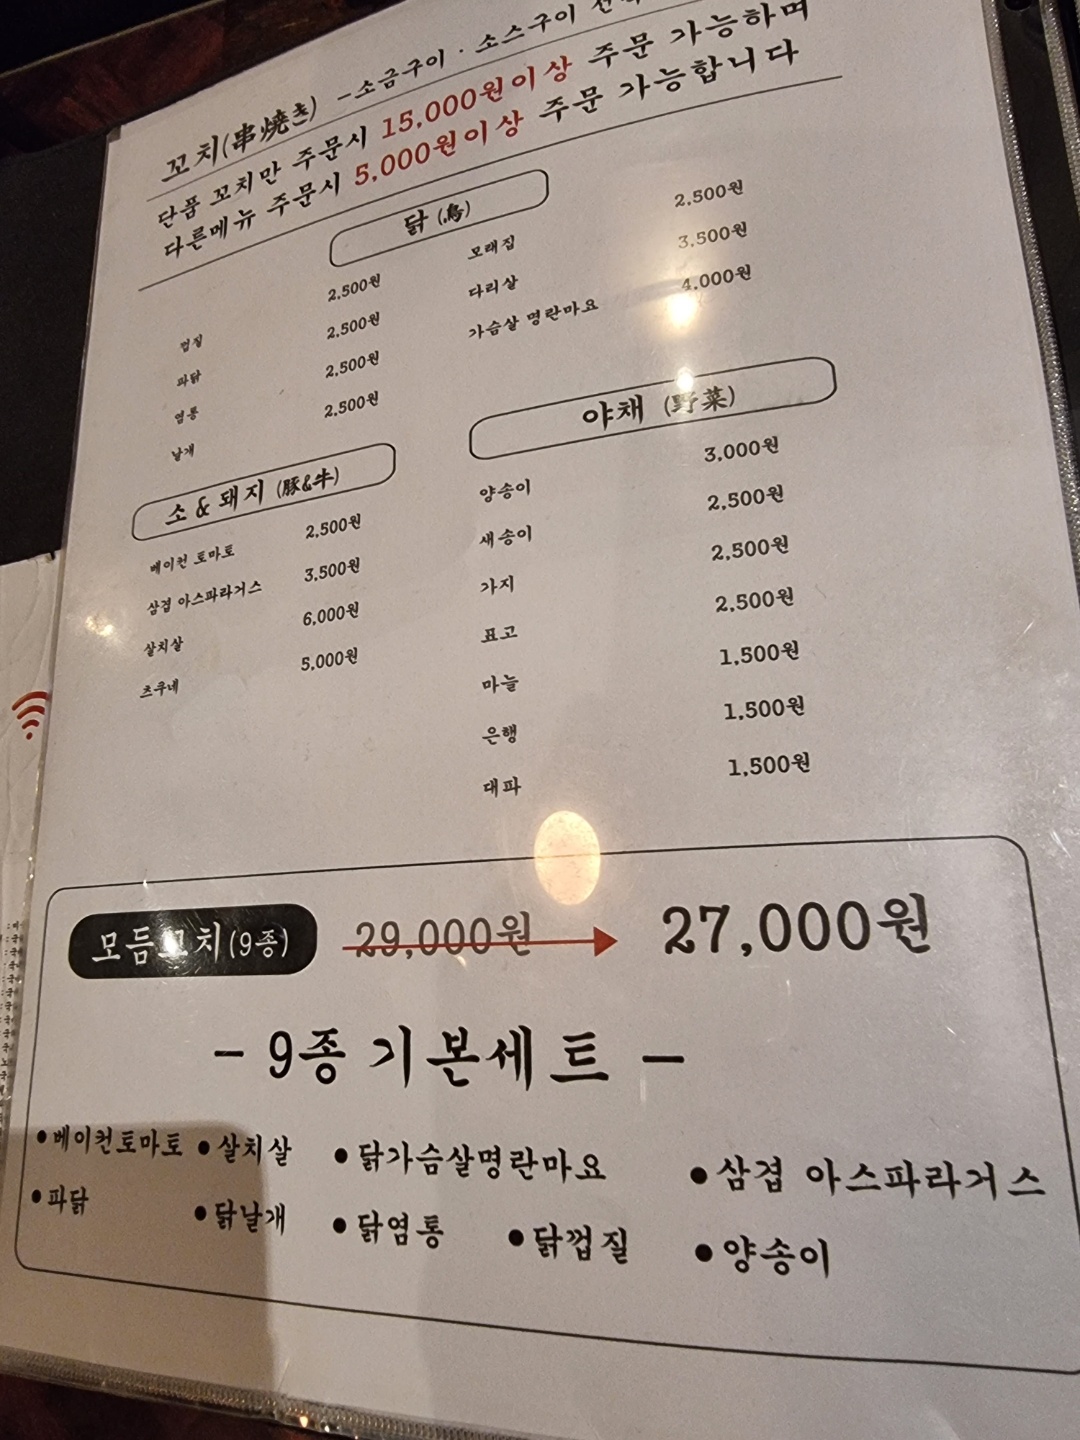 꼬치(串焼き) -소금구이 · 소스구이
단품 꼬치만 주문시 15,000원이상 주문 가능하며
다른메뉴 주문시 5,000원이상 주문 가능합니다
닭 (鳥)
껍질 2,500원
파닭 2,500원
염통 2,500원
날개 2,500원
모래집 2,500원
다리살 3,500원
가슴살 명란마요 4,000원
소 & 돼지 (豚&牛)
베이컨 토마토 2,500원
삼겹 아스파라거스 3,500원
살치살 6,000원
츠쿠네 5,000원
야채 (野菜)
양송이 3,000원
새송이 2,500원
가지 2,500원
표고 2,500원
마늘 1,500원
은행 1,500원
대파 1,500원
모듬꼬치(9종) 29,000원 27,000원
- 9종 기본세트 -
•베이컨토마토 •살치살 •닭가슴살명란마요 •삼겹 아스파라거스
•파닭 •닭날개 •닭염통 •닭껍질 •양송이